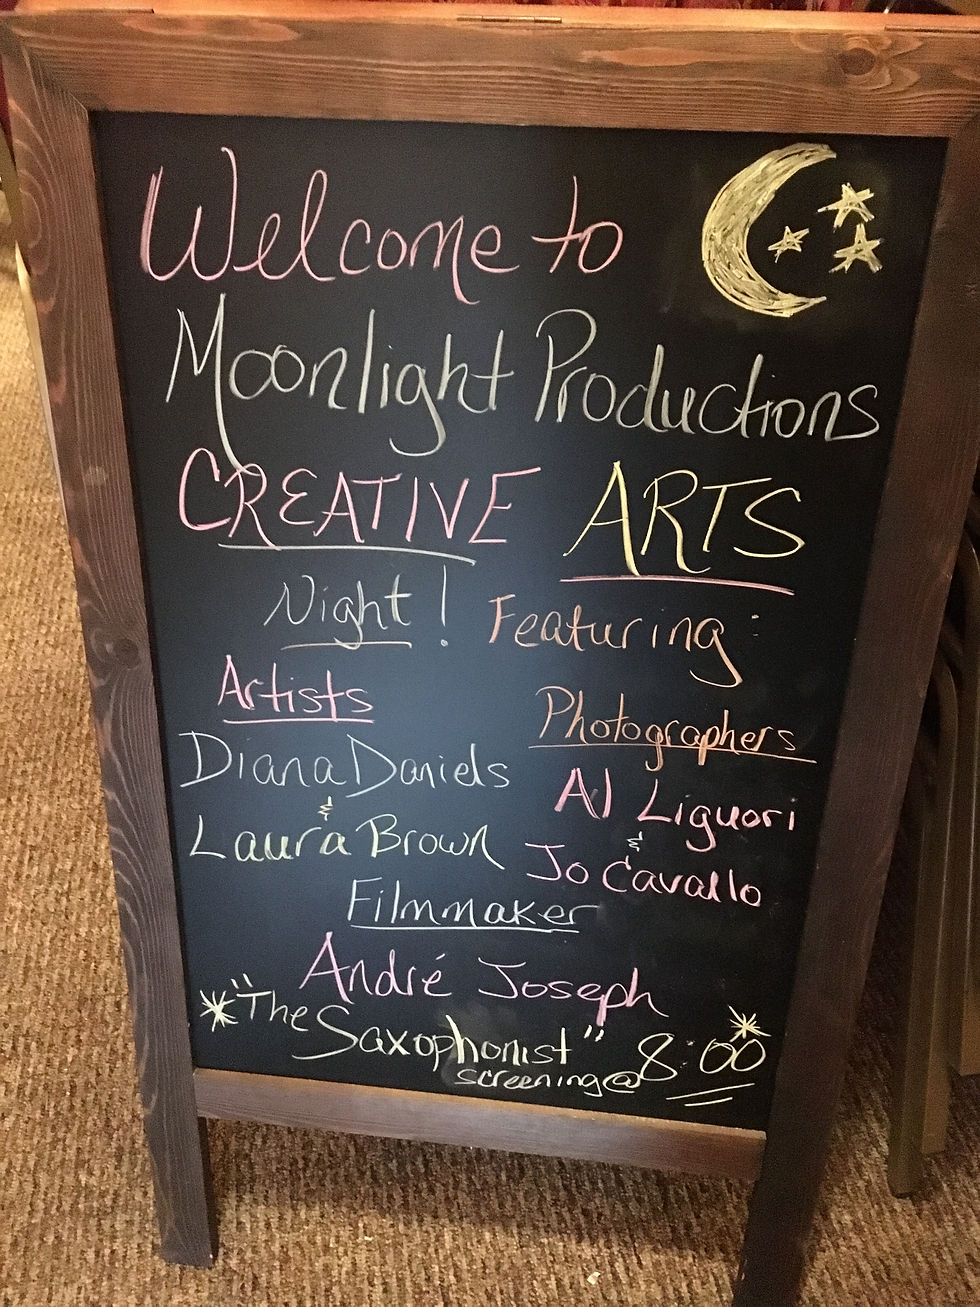 Welcome to
Moonlight Productions
CREATIVE ARTS
Night! Featuring:
Artists
Diana Daniels
&
Laura Brown
Photographers
Al Liguori
&
Jo Cavallo
Filmmaker
André Joseph
*"The Saxophonist"
screening @ 8:00*